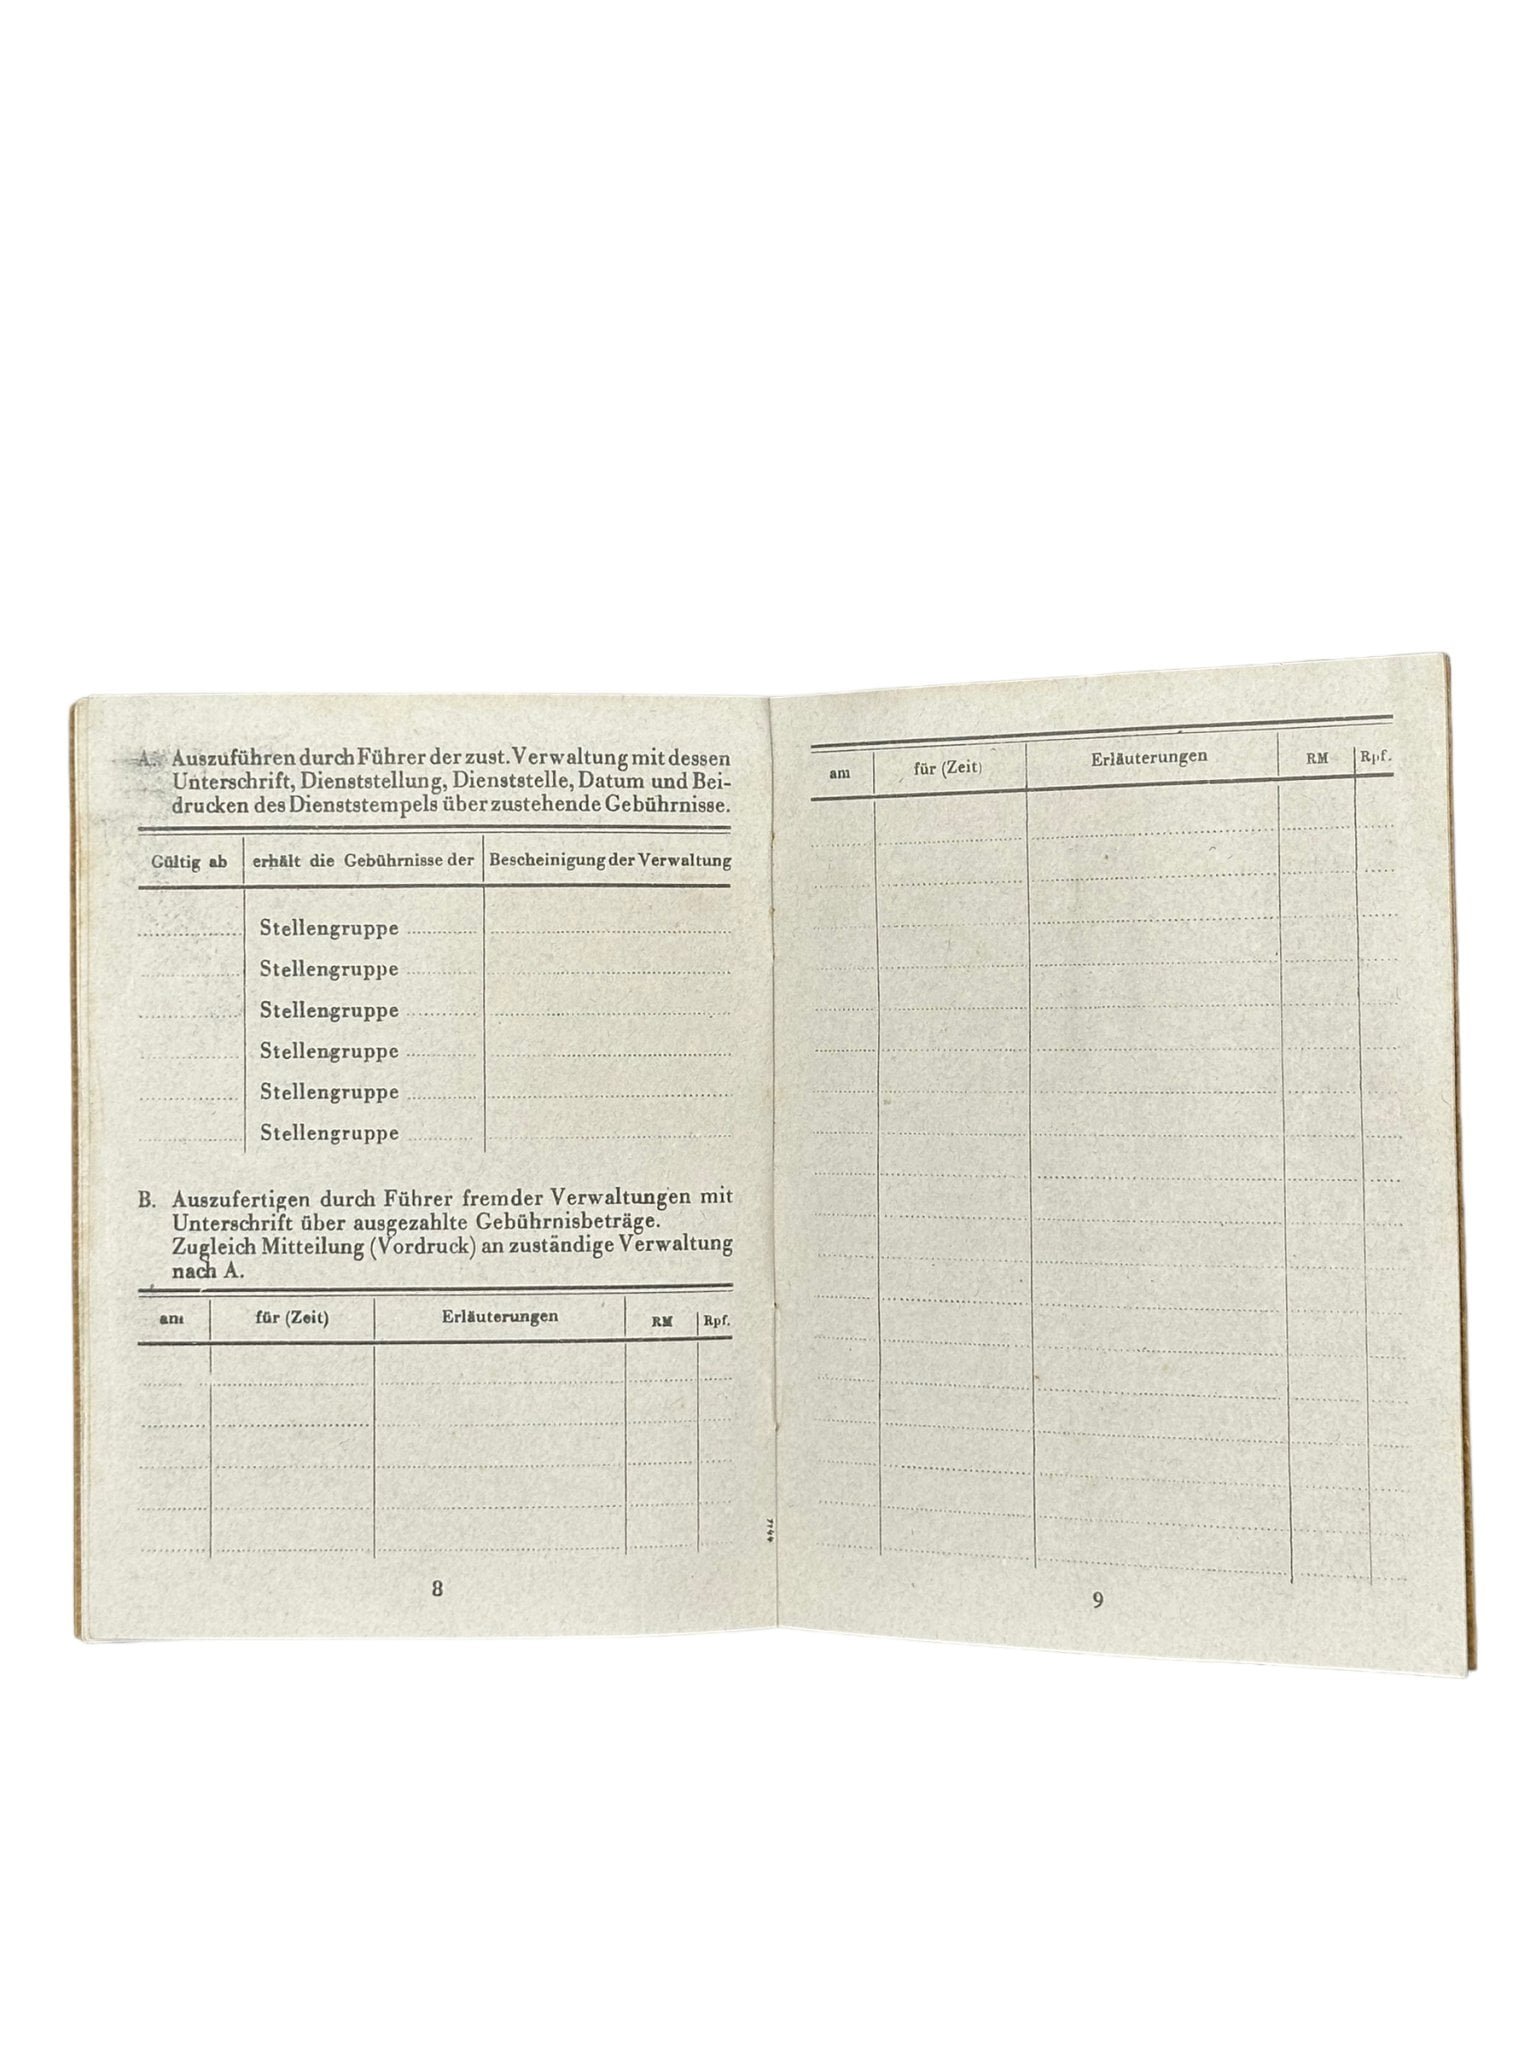 A. Auszuführen durch Führer der zust. Verwaltung mit dessen
Unterschrift, Dienststellung, Dienststelle, Datum und Bei-
drucken des Dienststempels über zustehende Gebührnisse.
Gültig ab erhält die Gebührnisse der Bescheinigung der Verwaltung
Stellengruppe
Stellengruppe
Stellengruppe
Stellengruppe
Stellengruppe
Stellengruppe
B. Auszufertigen durch Führer fremder Verwaltungen mit
Unterschrift über ausgezahlte Gebührnisbeträge.
Zugleich Mitteilung (Vordruck) an zuständige Verwaltung
nach A.
am für (Zeit) Erläuterungen RM Rpf.
8
am für (Zeit) Erläuterungen RM Rpf.
9